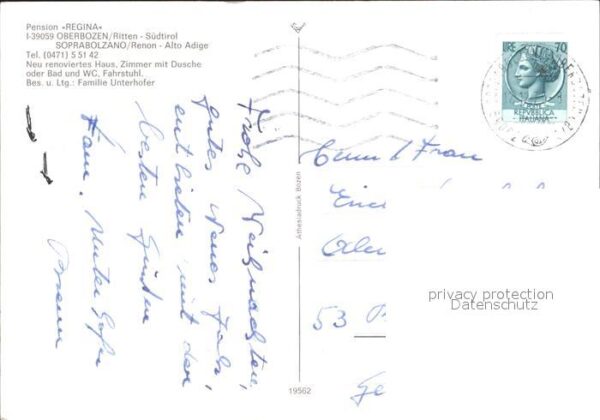 Pension «REGINA»
I-39059 OBERBOZEN/Ritten - Südtirol
SOPRABOLZANO/Renon - Alto Adige
Tel. (0471) 5 51 42
Neu renoviertes Haus, Zimmer mit Dusche
oder Bad und WC, Fahrstuhl.
Bes. u. Ltg.: Familie Unterhofer
Frohe Weihnachten,
gutes Neues Jahr,
entbieten mit den
besten Grüßen
Fam. Unterhofer
LIRE 70
REPUBBLICA
ITALIANA
Athesiadruck Bozen
Frau
53
19562
privacy protection
Datenschutz